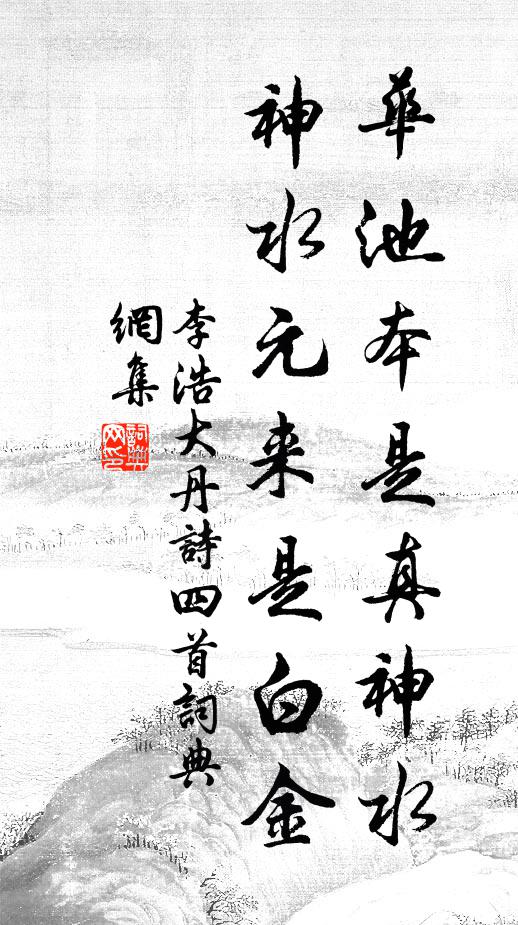 華池本是真神水
神水元来是白金
李浩大丹詩四首詞典
網集